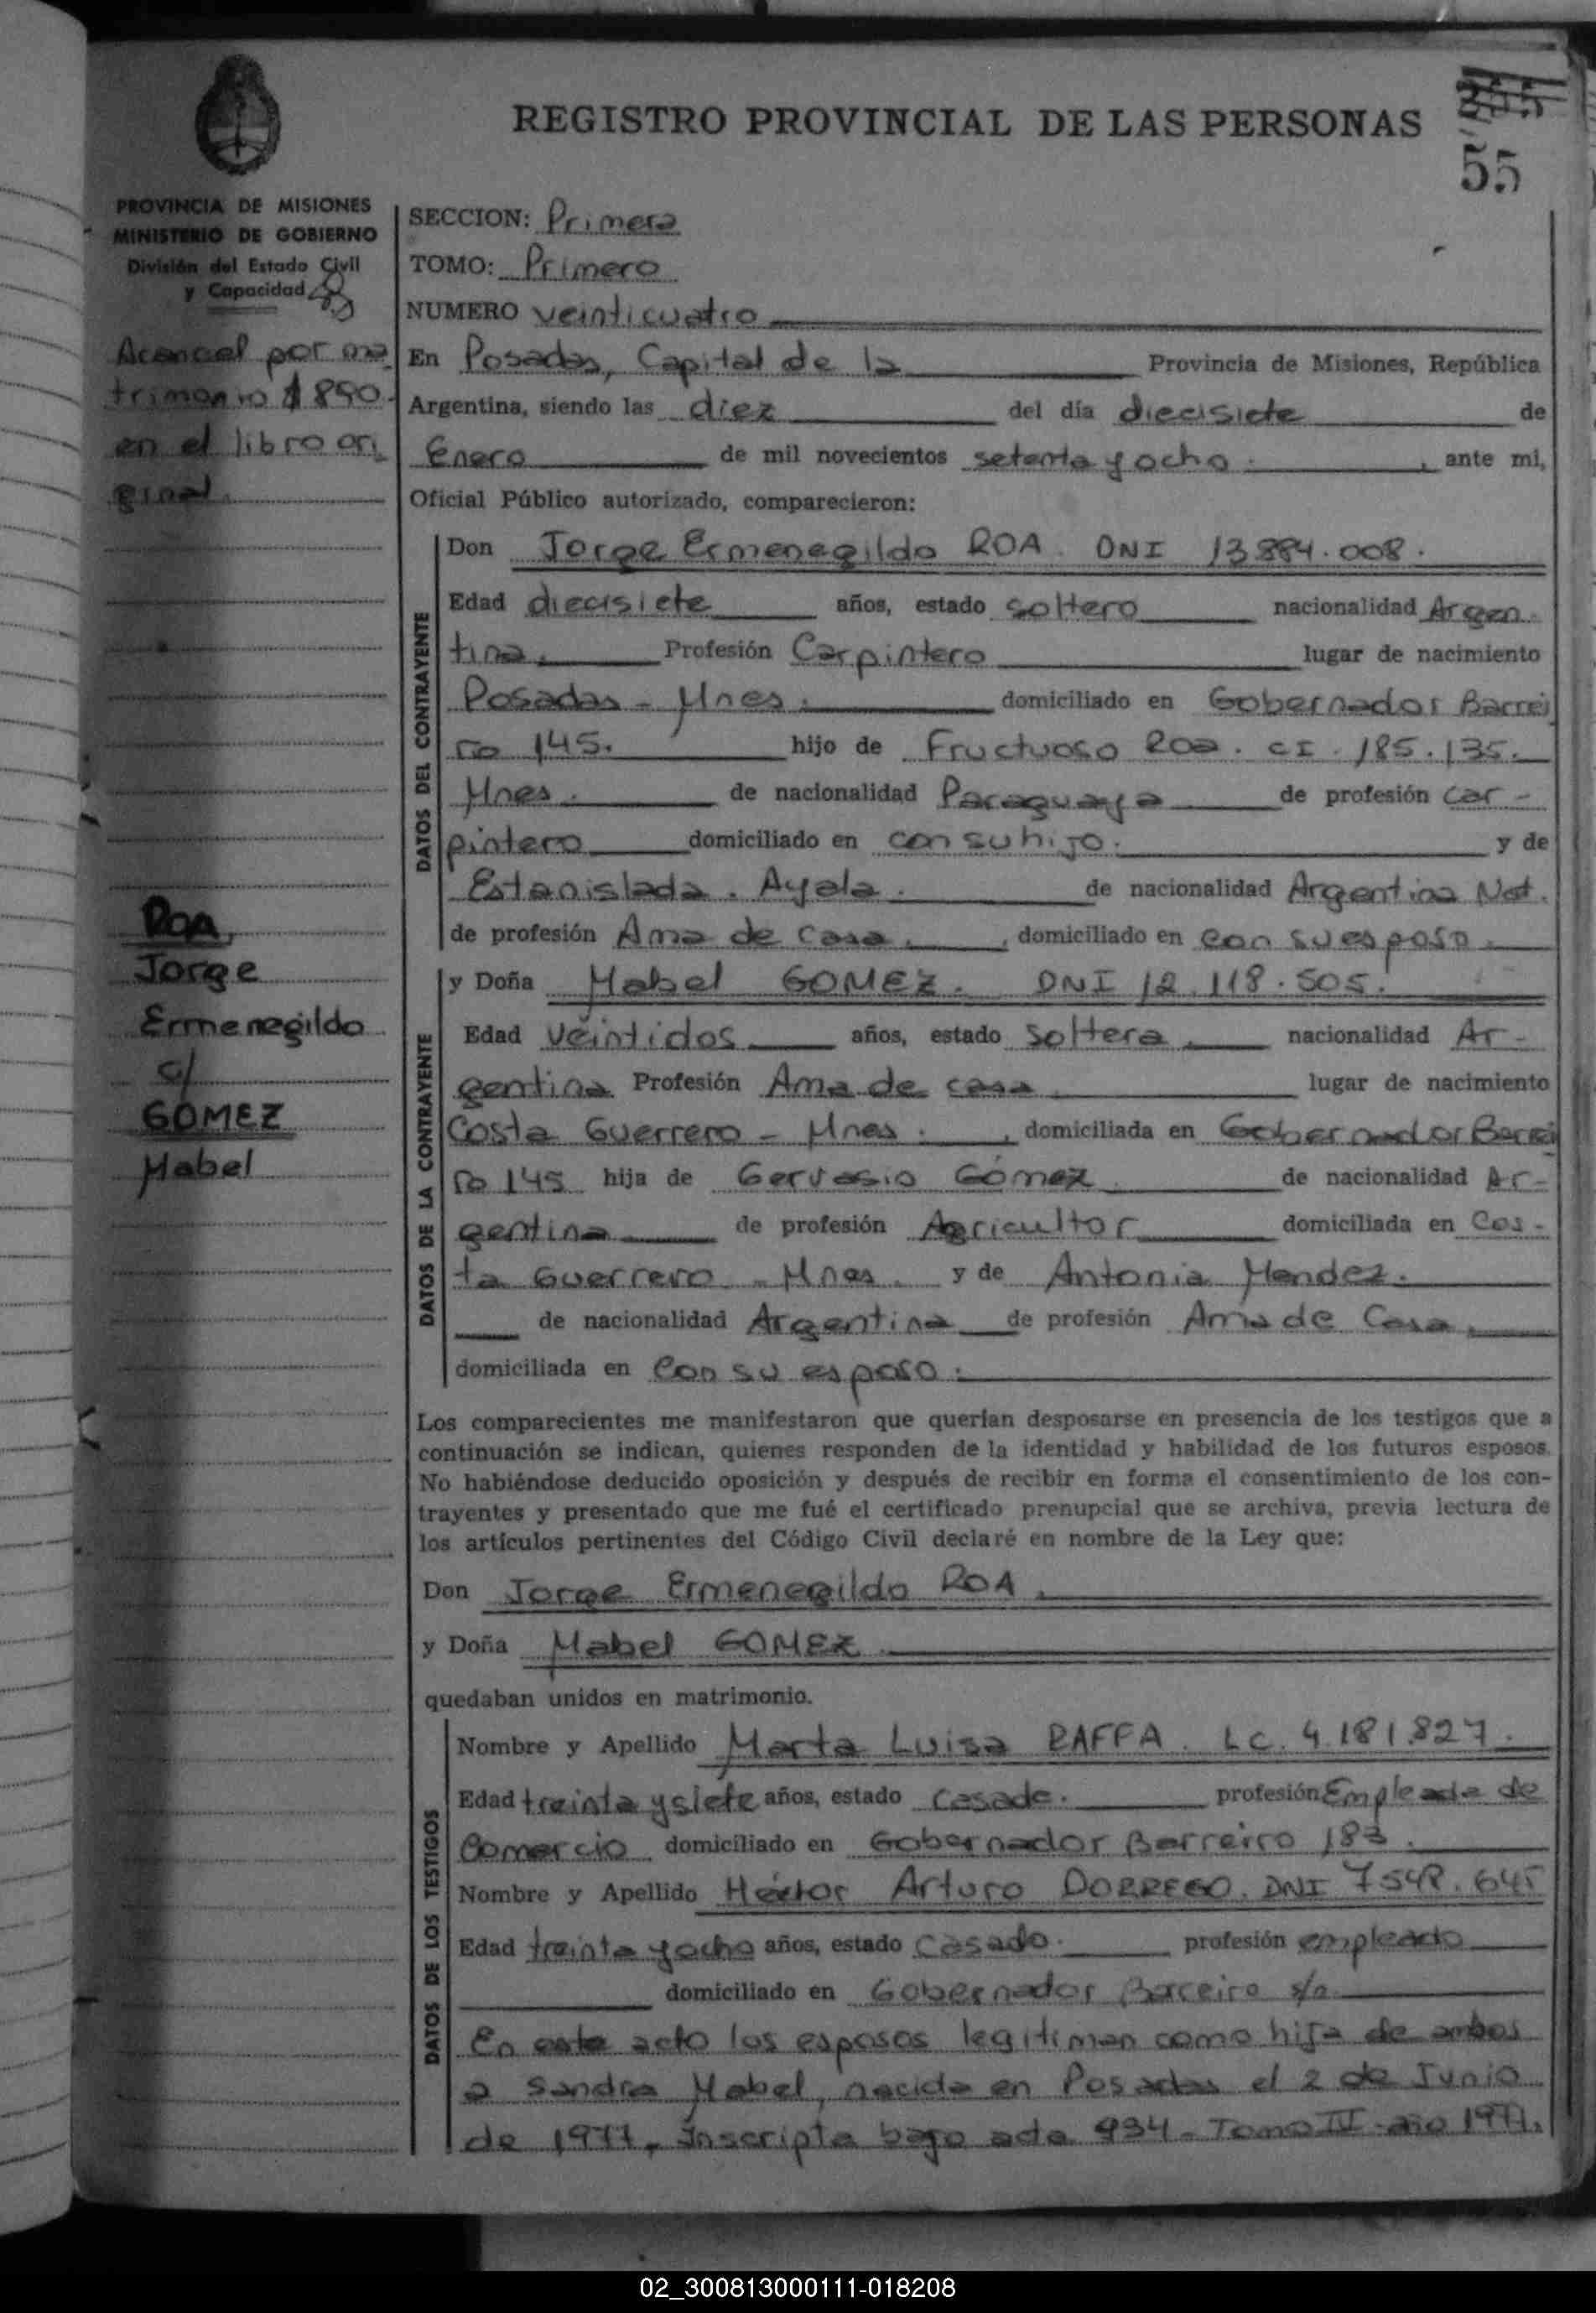 REGISTRO PROVINCIAL DE LAS PERSONAS
55
PROVINCIA DE MISIONES
MINISTERIO DE GOBIERNO
División del Estado Civil
y Capacidad
Arancel por ma
trimonio $ 890.
en el libro ori
ginal.
ROA,
Jorge
Ermenegildo
c/
GOMEZ
Mabel
SECCION: Primera
TOMO: Primero
NUMERO veinticuatro
En Posadas, Capital de la Provincia de Misiones, República
Argentina, siendo las diez del día diecisiete de
Enero de mil novecientos setenta y ocho. , ante mi,
Oficial Público autorizado, comparecieron:
DATOS DEL CONTRAYENTE
Don Jorge Ermenegildo ROA. DNI 13.884.008.
Edad diecisiete años, estado soltero nacionalidad Argen
tina. Profesión Carpintero lugar de nacimiento
Posadas - Mnes. domiciliado en Gobernador Barrei
ro 145. hijo de Fructuoso Roa. CI. 185.135.
Mnes. de nacionalidad Paraguaya de profesión car-
pintero domiciliado en con su hijo. y de
Estanislada. Ayala. de nacionalidad Argentina Nat.
de profesión Ama de casa. , domiciliado en con su esposo.
DATOS DE LA CONTRAYENTE
y Doña Mabel GOMEZ. DNI 12.118.505.
Edad veintidos años, estado soltera. nacionalidad Ar-
gentina Profesión Ama de casa lugar de nacimiento
Costa Guerrero - Mnes. , domiciliada en Gobernador Barrei
ro 145 hija de Gervasio Gómez de nacionalidad Ar-
gentina de profesión Agricultor domiciliada en Cos-
ta Guerrero - Mnes. y de Antonia Mendez.
de nacionalidad Argentina de profesión Ama de Casa.
domiciliada en Con su esposo.
Los comparecientes me manifestaron que querían desposarse en presencia de los testigos que a
continuación se indican, quienes responden de la identidad y habilidad de los futuros esposos.
No habiéndose deducido oposición y después de recibir en forma el consentimiento de los con-
trayentes y presentado que me fué el certificado prenupcial que se archiva, previa lectura de
los artículos pertinentes del Código Civil declaré en nombre de la Ley que:
Don Jorge Ermenegildo ROA.
y Doña Mabel GOMEZ.
quedaban unidos en matrimonio.
DATOS DE LOS TESTIGOS
Nombre y Apellido Marta Luisa RAFFA. LC. 4.181.827.
Edad treinta y siete años, estado casada. profesión Empleada de
Comercio domiciliado en Gobernador Barreiro 183.
Nombre y Apellido Héctor Arturo DORREGO. DNI 7.548.645
Edad treinta y ocho años, estado Casado. profesión empleado
domiciliado en Gobernador Barreiro s/n
En este acto los esposos legitiman como hija de ambos
a Sandra Mabel, nacida en Posadas el 2 de Junio
de 1977. Inscripta bajo acta 934 - Tomo III - año 1977.
02_300813000111-018208